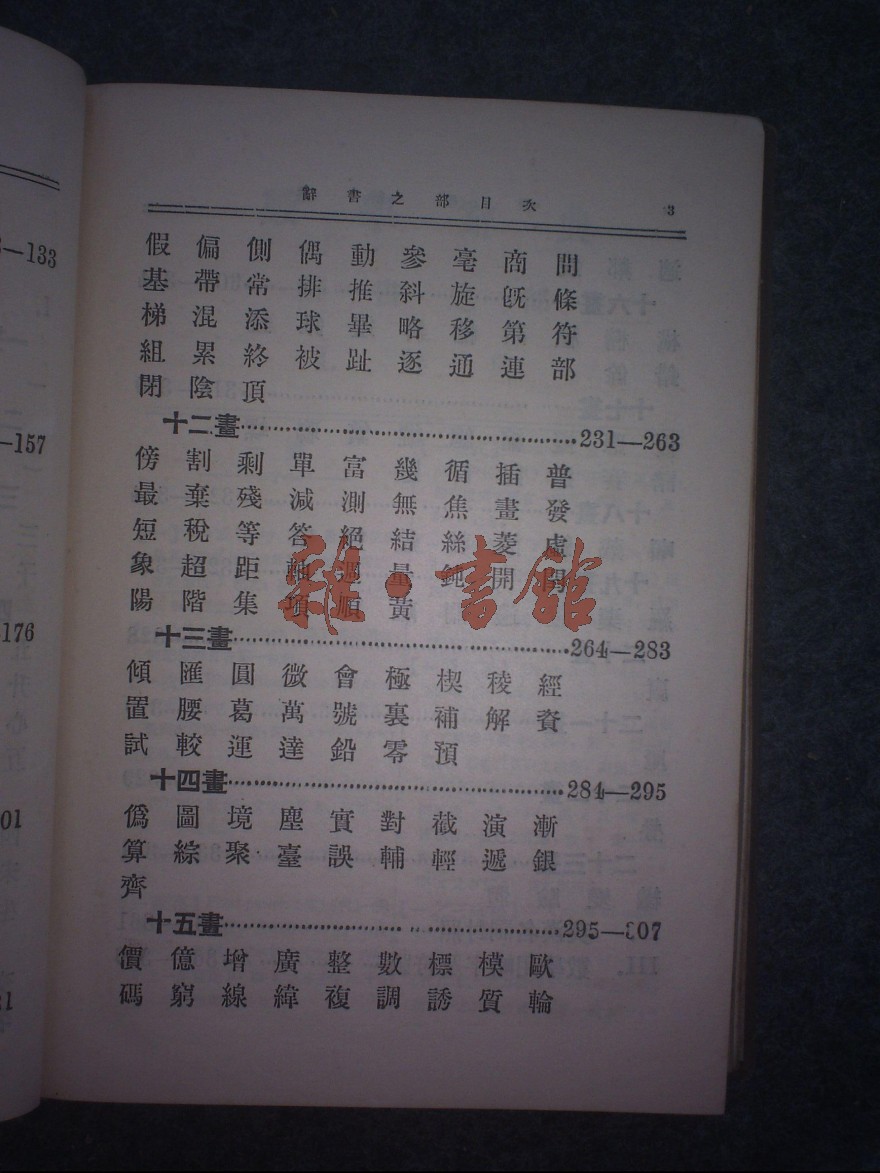 辭書之部目次 3
假偏側偶動參毫商問
基帶常排推斜旋旣條
梯混添球畢略移第符
組累終被趾逐通連部
閉陰頂
十二畫 231—263
傍割剩單富幾循插普
最棄殘減測無焦畫發
短稅等答絕結絲菱虛
象超距軸週量鈍開間
陽階集項順黃
十三畫 264—283
傾匯圓微會極楔稜經
置腰葛萬號裏補解資
試較運達鉛零預
十四畫 284—295
僞圖境塵實對截演漸
算綜聚臺誤輔輕遞銀
齊
十五畫 295—307
價億增廣整數標模歐
碼窮線緯複調誘質輪
雜·書館
—133
—157
176
01